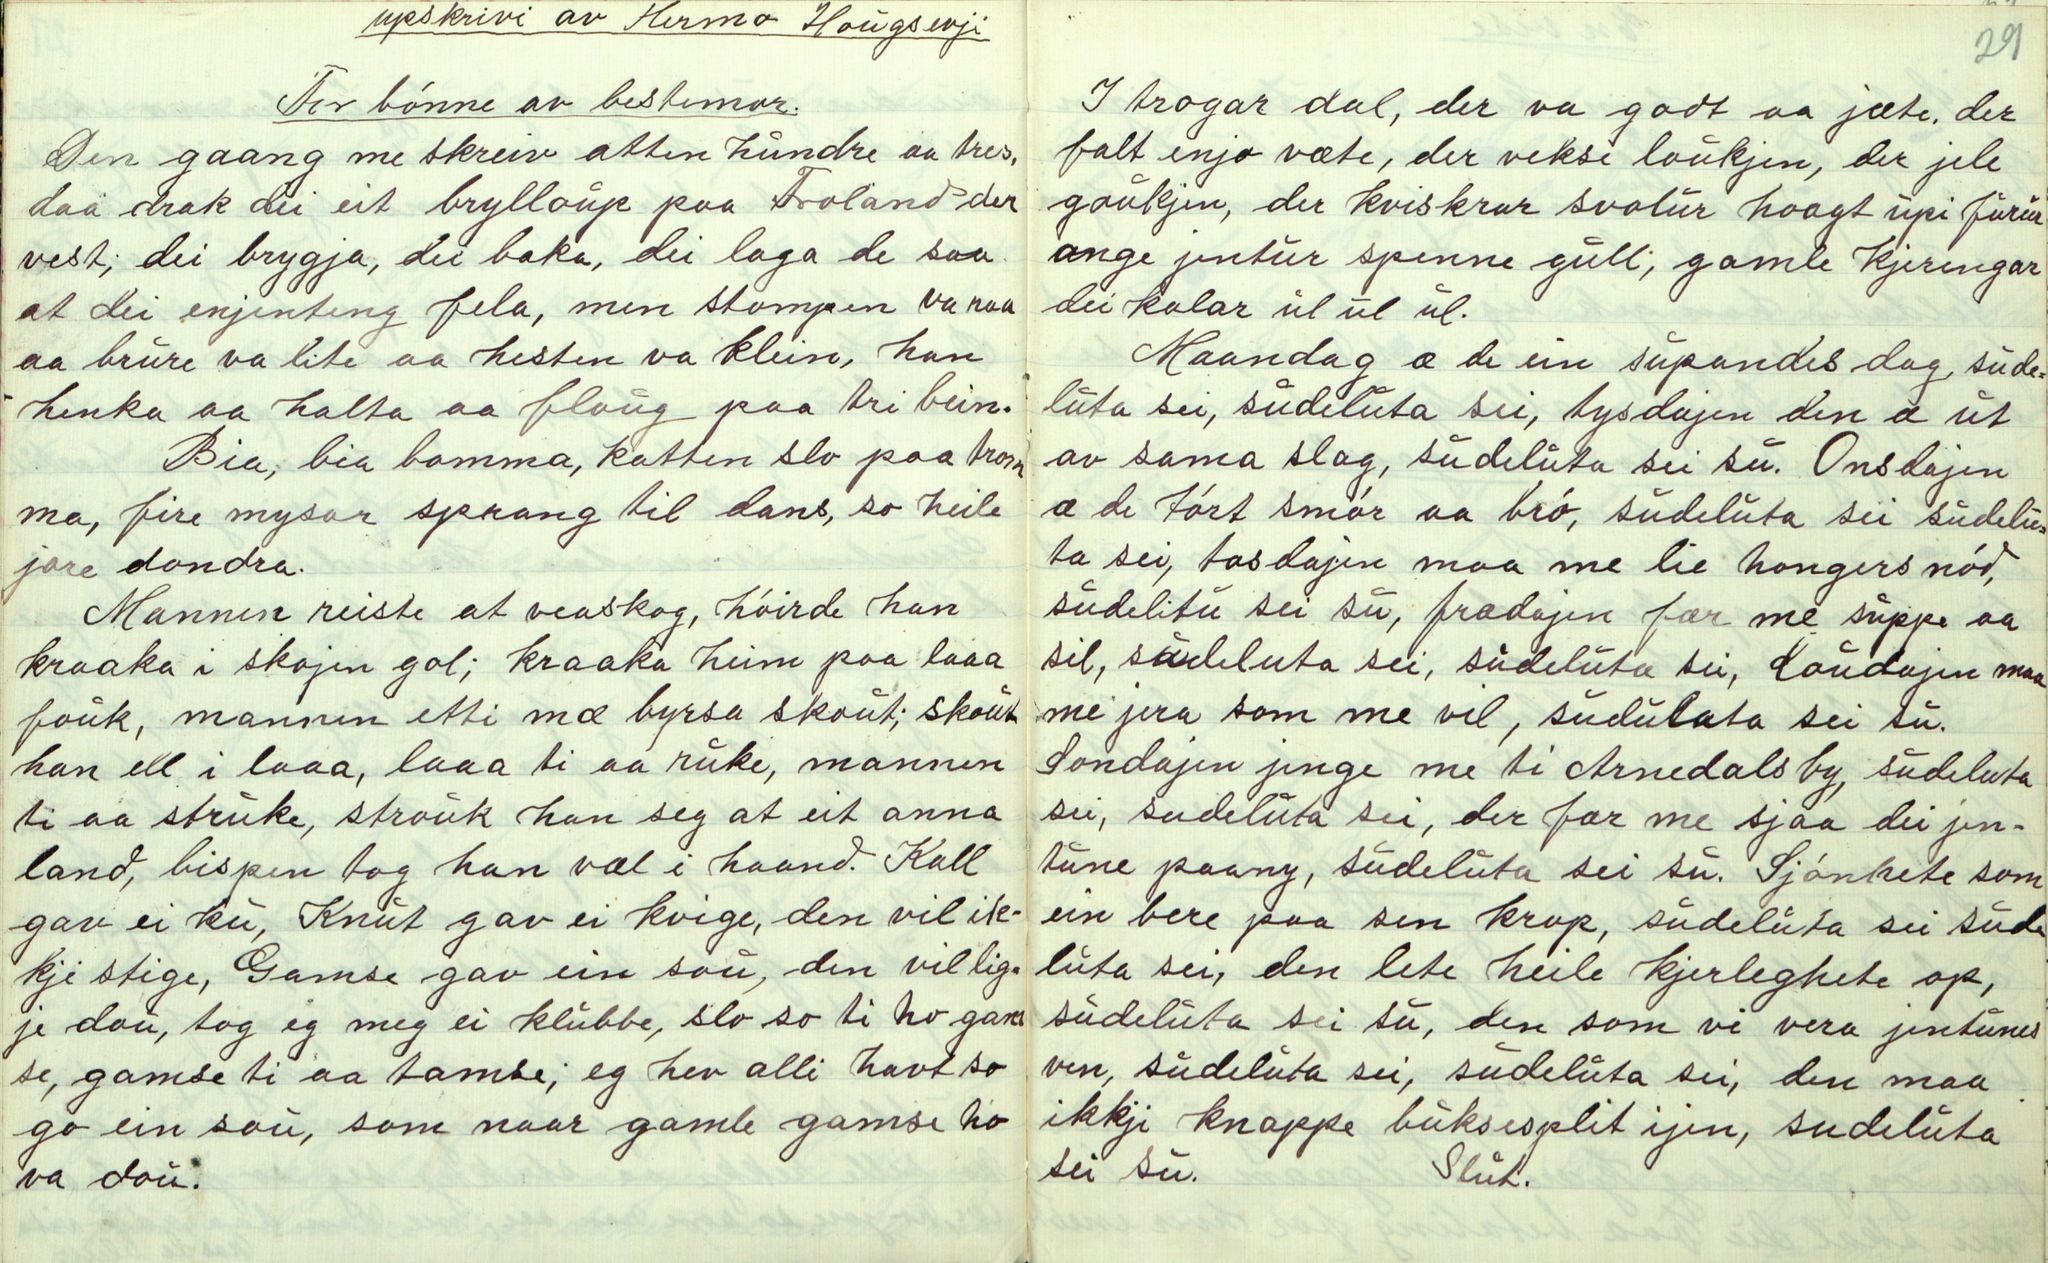 upskrivi av Hermo Hougsevji
For bónne av bestemor.
Den gaang me skreiv atten hundre aa tres,
daa drak dei eit brylloup paa Froland der
vest; dei brygja, dei baka, dei laga de saa
at dei enjenteng fela, men stompen va raa
aa brure va lite aa hesten va klein, han
henka aa halta aa floug paa tri bein.
Bia, bia bomma, katten slo paa trom
ma, fire mysar sprang til dans, so heile
jore dondra.
Mannen reiste at veaskog, hóirde han
kraaka i skojen gol; kraaka heim paa laaa
fouk, mannen etti mæ byrsa skout; skout
han ell i laaa, laaa ti aa ruke, mannen
ti aa struke, strouk han seg at eit anna
land, bispen tog han væl i haand. Kall
gav ei ku, Knut gav ei kvige, den vil ik-
kje stige, Gamse gav ein sou, den vil lig-
je dou, tog eg meg ei klubbe, slo so ti ho gam
se, gamse ti aa tamse; eg hev alli havt so
go ein sou, som naar gamle gamse ho
va dou.
29
I trogar dal, der va godt aa jæte. der
falt enjo væte, der vekse loukjen, der jele
goukjen, der kviskrar svolur hoagt upi furur
ange jentur spenne gull; gamle kjeringar
dei kalar ul ul ul.
Maandag æ de ein supandes dag, sude-
luta sei, sudeluta sei, tysdajen den æ ut
av sama slag, sudeluta sei su. Onsdajen
æ de tórt smór aa bró, sudeluta sei sudelu-
ta sei, tosdajen maa me lie hongersnód,
sudelitu sei su, frædajen fær me suppe aa
sil, sudeluta sei, sudeluta sei, Loudajen maa
me jera som me vil, sudulata sei su.
Sondajen jenge me ti Arnedals by, sudeluta
sei, sudeluta sei, der fær me sjaa dei jen-
tune paany, sudeluta sei su. Sjónhete som
ein bere paa sen krop, sudeluta sei sude
luta sei, den lete heile kjerleghete op,
sudeluta sei su, den som vi vera jentunes
ven, sudeluta sei, sudeluta sei, den maa
ikkji knappe buksesplit ijen, sudeluta
sei su. Slut.